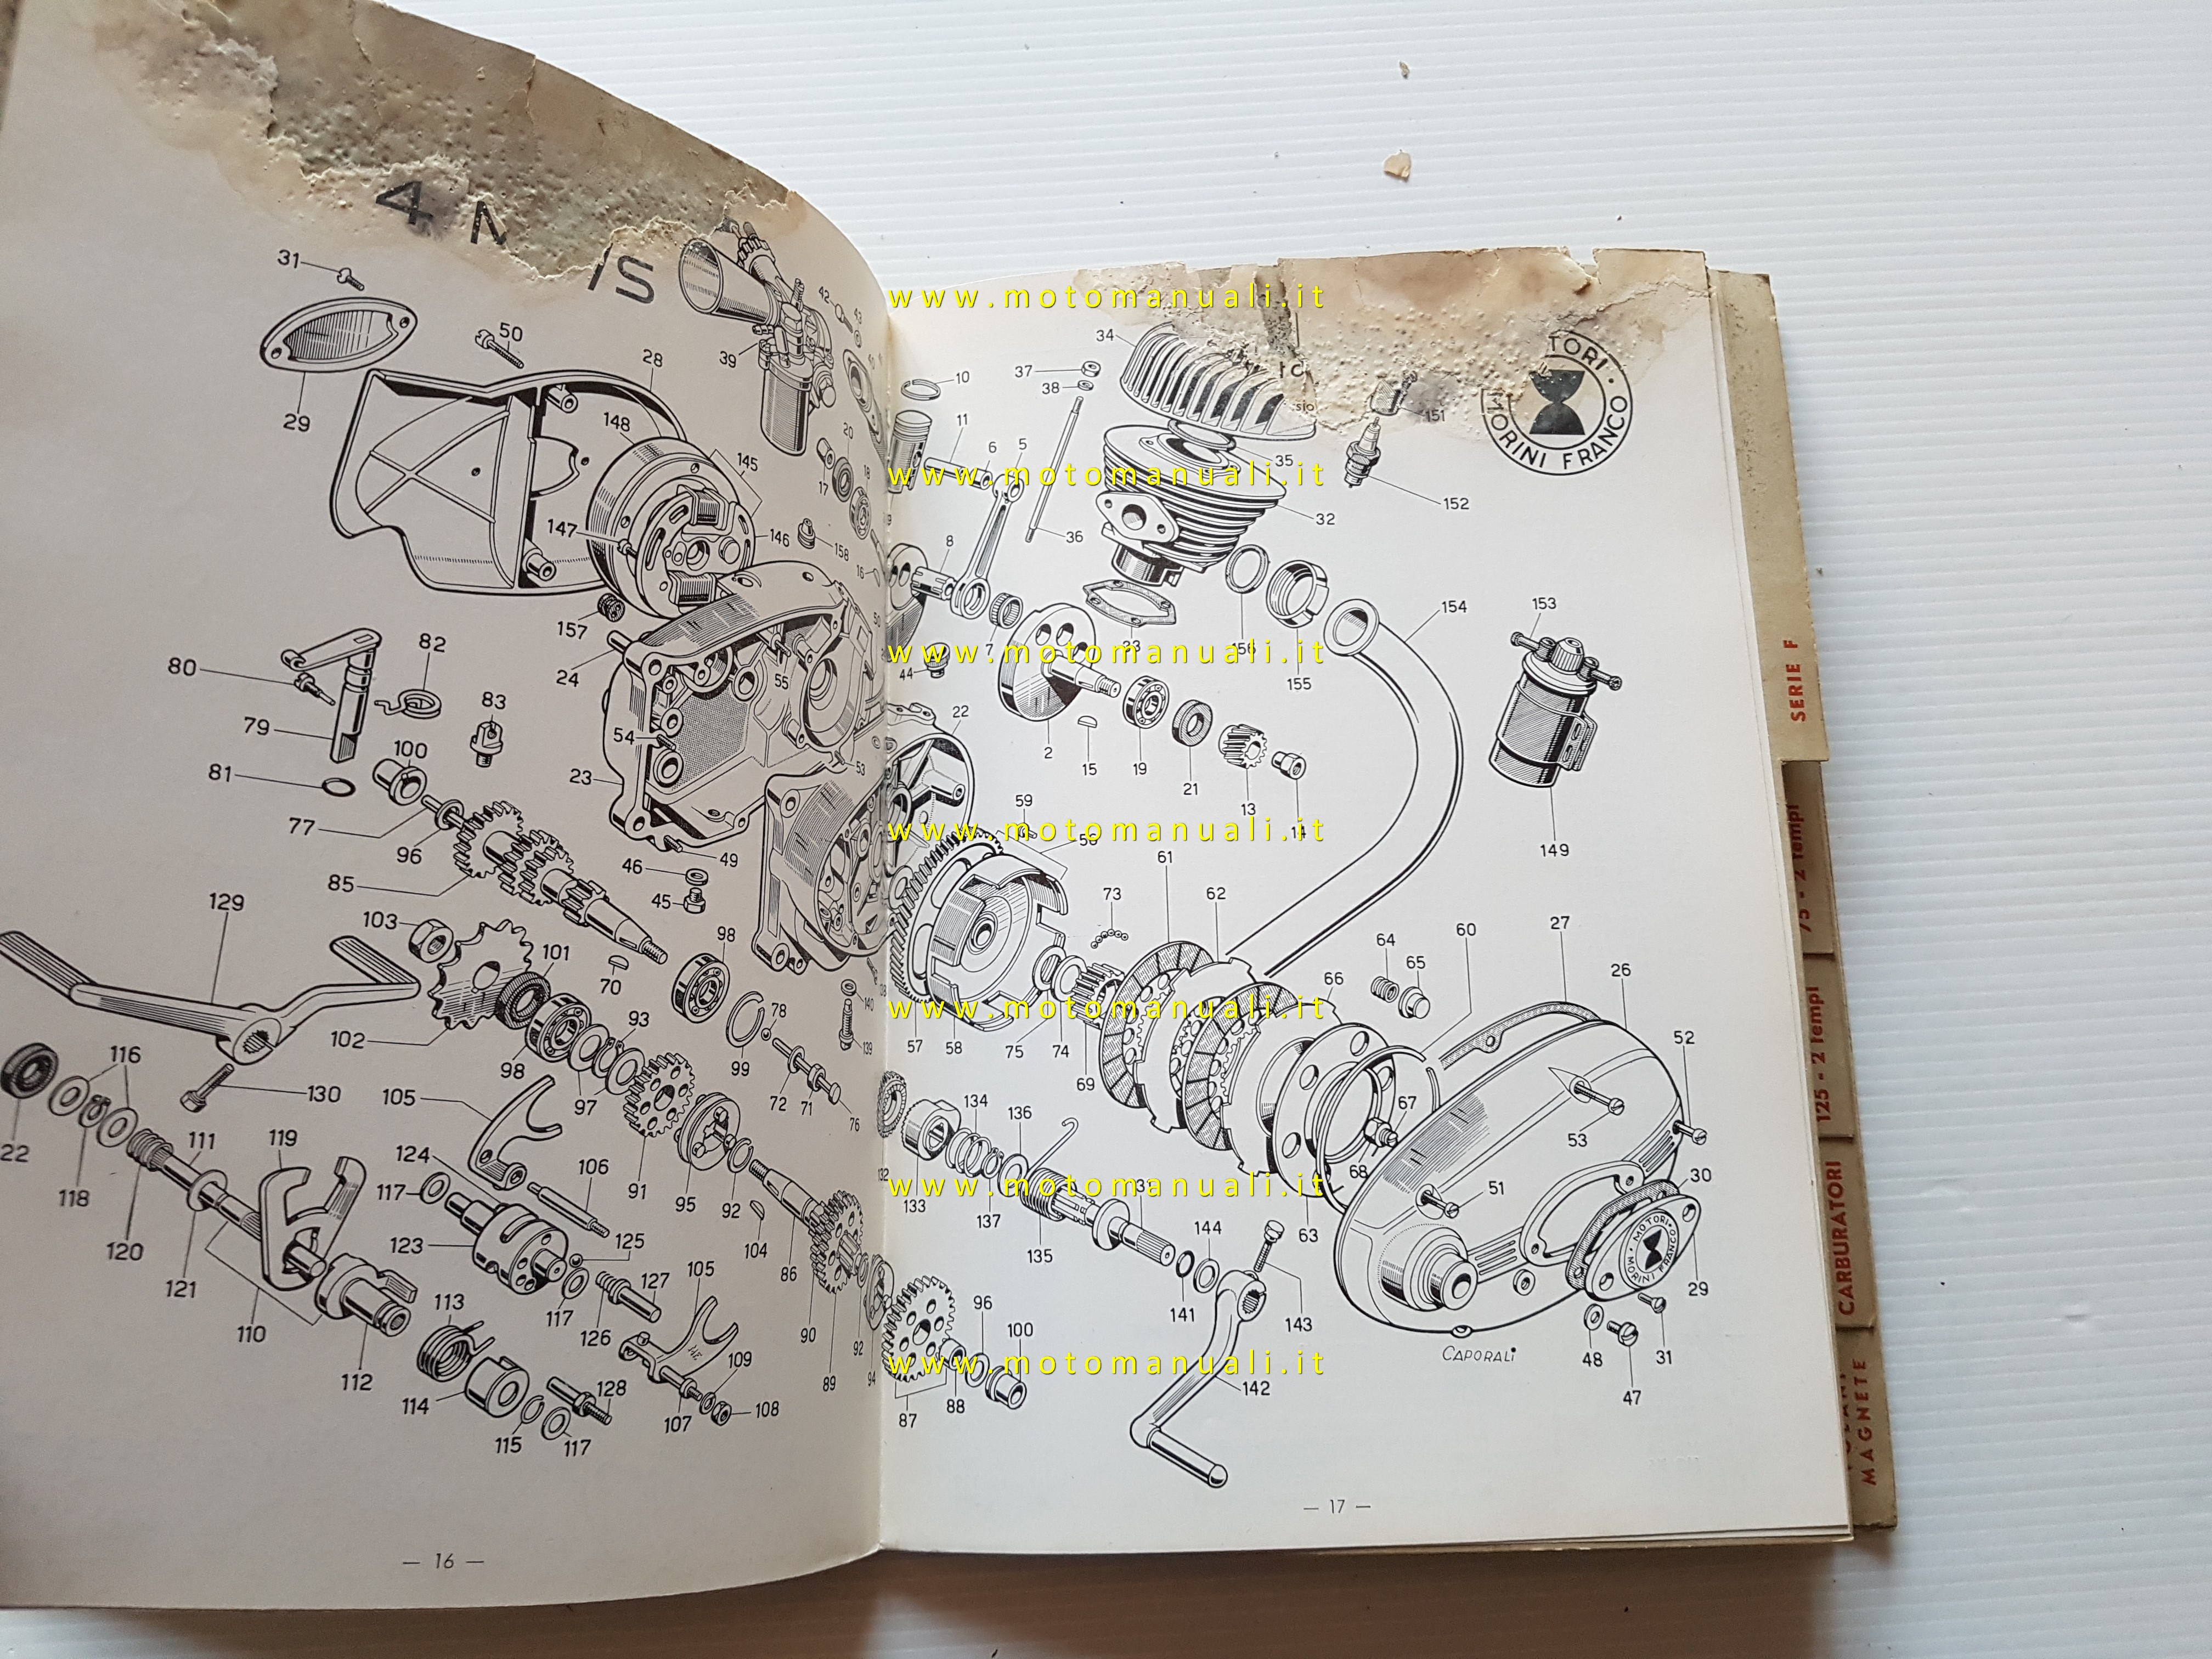 4 M
/S
31
29
50
28
148
145
147
146
158
157
24
39
42
43
20
17
18
16
80
82
79
83
100
81
77
96
85
54
23
55
53
49
46
45
129
103
101
102
70
98
98
93
97
99
78
72
71
76
140
139
116
130
105
22
118
111
119
124
117
106
91
95
92
104
86
120
121
110
123
125
117
126
127
105
113
112
114
115
117
128
107
109
108
90
89
92
94
— 16 —
www.motomanuali.it
34
TORI ·
MORINI FRANCO
37
38
10
11
6
5
35
151
152
www.motomanuali.it
32
36
8
7
33
156
155
154
153
44
www.motomanuali.it
22
2
15
19
21
13
14
149
59
56
www.motomanuali.it
61
62
73
64
65
60
27
26
66
52
www.motomanuali.it
57
58
75
74
69
67
68
53
134
136
132
133
137
135
www.motomanuali.it
51
30
63
144
141
143
MOTORI · MORINI FRANCO ·
29
31
48
47
96
100
www.motomanuali.it
88
87
142
CAPORALI
— 17 —
SERIE F
75 - 2 tempi
125 - 2 Tempi
CARBURATORI
MAGNETE